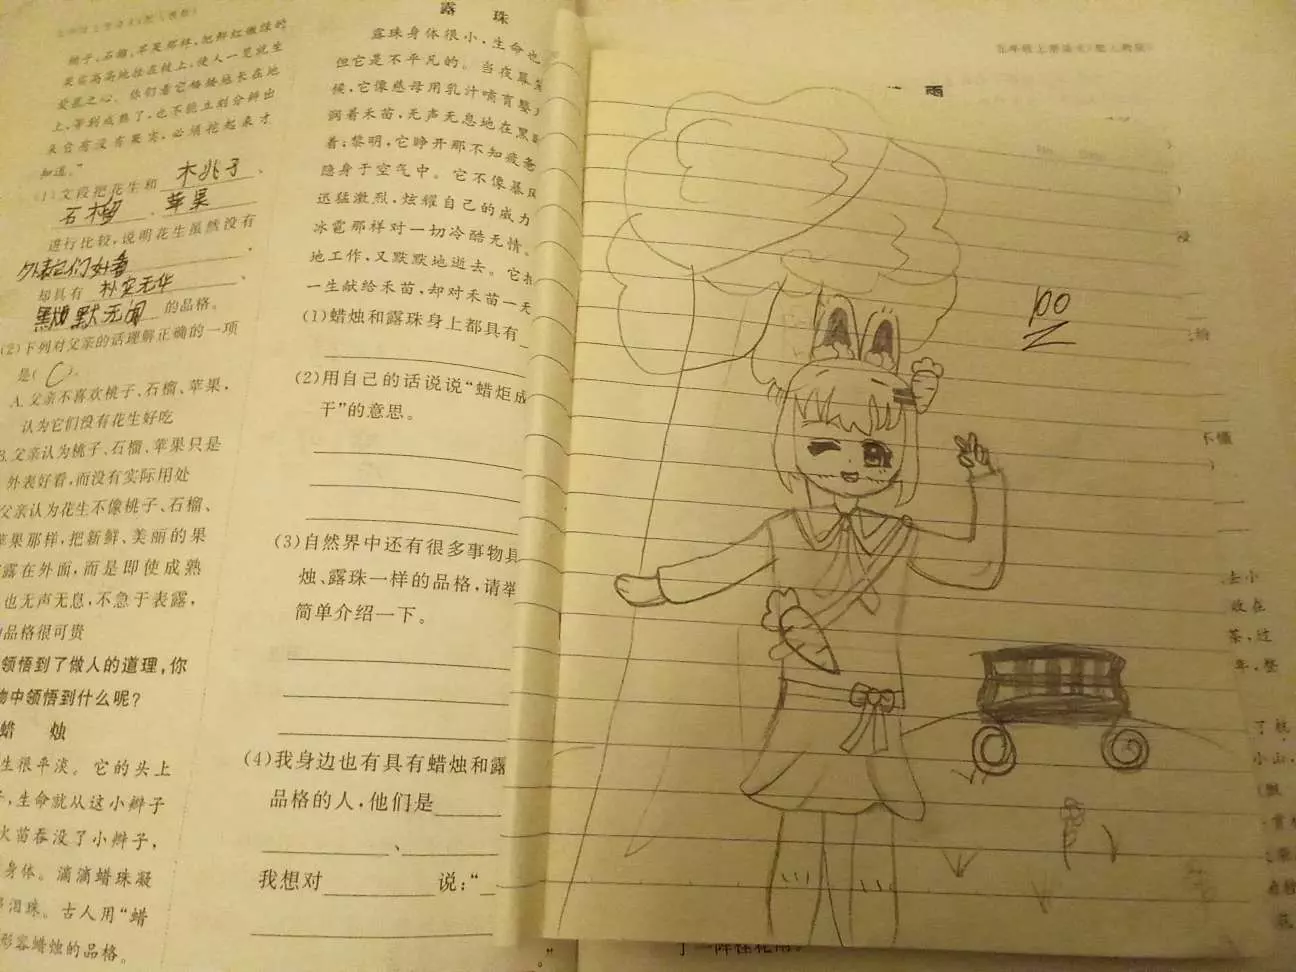 桃子、石榴、苹果那样,把鲜红嫩绿的
果实高高地挂在枝上,使人一见就生
爱慕之心。你们看它矮矮地长在地
上,等到成熟了,也不能立刻分辨出
来它有没有果实,必须挖起来才
知道。”
(1)文段把花生和 桃子 、
石榴 、 苹果
进行比较,说明花生虽然没有
外表它们好看 ,
却具有 朴实无华 、
默默无闻 的品格。
(2)下列对父亲的话理解正确的一项
是( C )。
A.父亲不喜欢桃子、石榴、苹果,
认为它们没有花生好吃
B.父亲认为桃子、石榴、苹果只是
外表好看,而没有实际用处
父亲认为花生不像桃子、石榴、
苹果那样,把新鲜、美丽的果
露在外面,而是即使成熟
也无声无息,不急于表露,
品格很可贵
领悟到了做人的道理,你
物中领悟到什么呢?
蜡 烛
生很平淡。它的头上
,生命就从这小辫子
火苗吞没了小辫子,
身体。滴滴蜡珠凝
泪珠。古人用“蜡
形容蜡烛的品格。
露 珠
露珠身体很小,生命也
但它是不平凡的。当夜幕
候,它像慈母用乳汁哺育婴
润着禾苗,无声无息地在黑
着;黎明,它睁开那不知疲惫
隐身于空气中。它不像暴风
迅猛激烈,炫耀自己的威力
冰雹那样对一切冷酷无情。
地工作,又默默地逝去。它
一生献给禾苗,却对禾苗一
(1)蜡烛和露珠身上都具有
(2)用自己的话说说“蜡炬成
干”的意思。
(3)自然界中还有很多事物具
烛、露珠一样的品格,请举
简单介绍一下。
(4)我身边也有具有蜡烛和露
品格的人,他们是
、
我想对 说:“
”
五年级上册语文(配人教版)
雨
100
不懂
去小
放在
茶,过
年,整
了桃
小山,